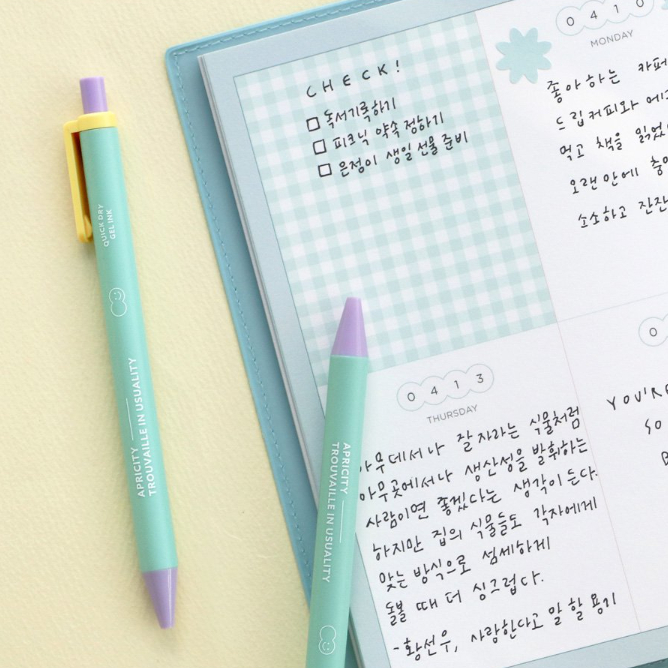 CHECK!
독서기록하기
피크닉 약속 정하기
은정이 생일 선물 준비
0410
MONDAY
좋아하는 카페
드립커피와 에그
먹고 책을 읽었
오랜만에
소소하고 잔잔
0413
THURSDAY
아무데서나 잘 자라는 식물처럼
아무곳에서나 생산성을 발휘하는
사람이면 좋겠다는 생각이 든다.
하지만 집의 식물들도 각자에게
맞는 방식으로 섬세하게
돌볼 때 더 싱그럽다.
-황선우, 사랑한다고 말할 용기
0
YOU'RE
SO
QUICK DRY
GEL INK
APRICITY
TROUVAILLE IN USUALITY
APRICITY
TROUVAILLE IN USUALITY